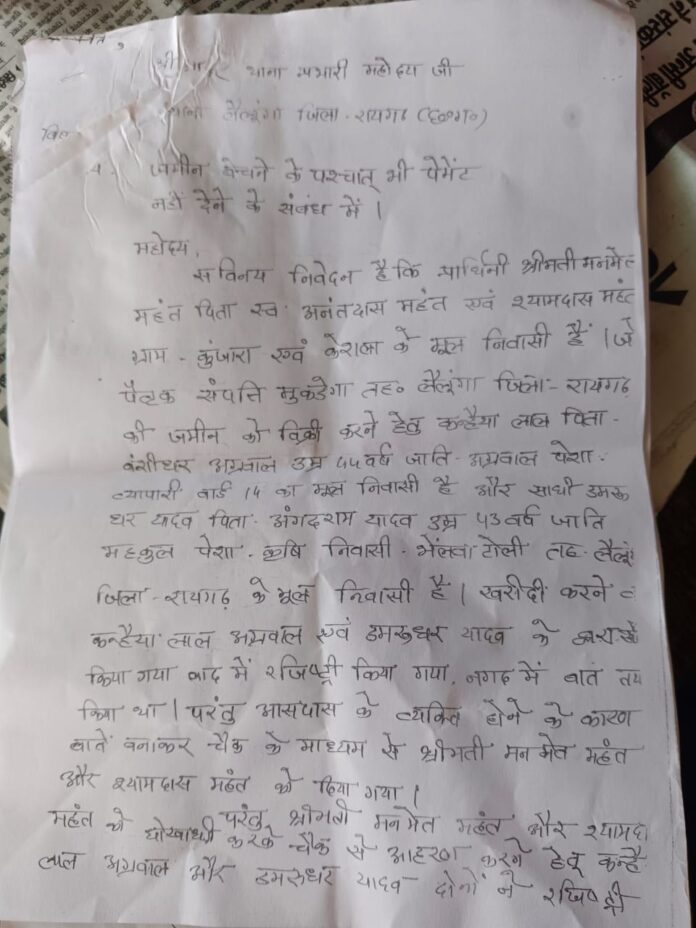 थाना प्रभारी महोदय जी
थाना लैलूंगा जिला - रायगढ़ (छ०ग०)
जमीन बेचने के पश्चात् भी पेमेंट
नहीं देने के संबंध में |
महोदय,
सविनय निवेदन है कि प्रार्थिनी श्रीमती मनमेत
महंत पिता स्व. अनंतदास महंत एवं श्यामदास महंत
ग्राम - कुंजारा एवं केराबा के मूल निवासी हैं | जो
पैतृक संपत्ति मुकडेगा तह० लैलूंगा जिला - रायगढ़
की जमीन को विक्री करने हेतु कन्हैया लाल पिता -
वंशीधर अग्रवाल उम्र 55 वर्ष जाति - अग्रवाल पेशा -
व्यापारी वार्ड 14 का मूल निवासी है और साथी डमरू
धर यादव पिता - अंगदराम यादव उम्र 53 वर्ष जाति
महकुल पेशा - कृषि निवासी - भेलवा टोली तह. लैलूं
जिला - रायगढ़ के मूल निवासी है | खरीदी करने
कन्हैया लाल अग्रवाल एवं डमरुधर यादव के
किया गया बाद में रजिष्ट्री किया गया, नगद में बात तय
किया था | परंतु आसपास के व्यक्ति होने के कारण
बातें बनाकर चैक के माध्यम से श्रीमती मनमेत महंत
और श्यामदास महंत को दिया गया |
परंतु श्रीमती मनमेत महंत और श्यामदा
महंत को धोखाधी करके चैक से आहरण करने हेतू कन्है
लाल अग्रवाल और डमरुधर यादव दोनों ने रजिष्ट्री